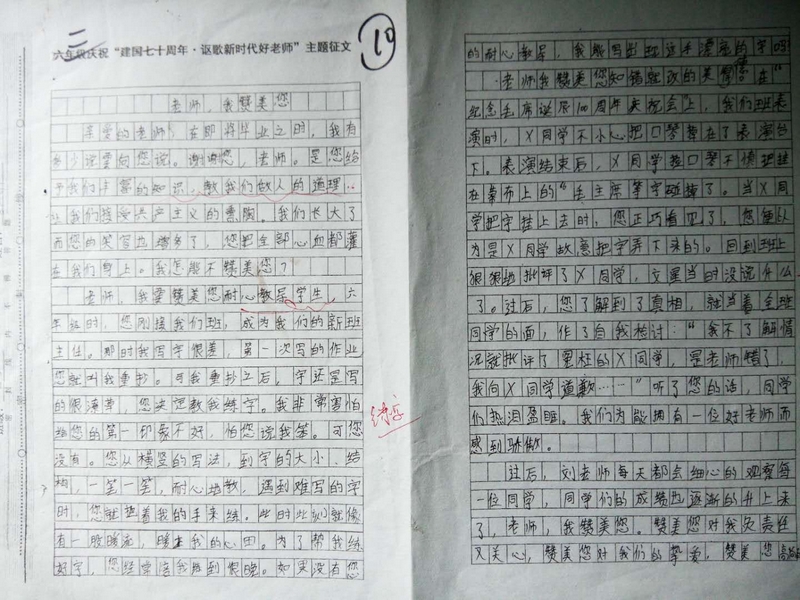 二
六年级庆祝“建国七十周年·讴歌新时代好老师”主题征文
10
老师，我赞美您
亲爱的老师，在即将毕业之时，我有
多少话要向您说。谢谢您，老师。是您给
予我们丰富的知识，教我们做人的道理，
我们长大了
而您的笑写也增多了，您把全部心血都灌
在我们身上。我怎能不赞美您？
老师，我要赞美您耐心教导学生，六
年级时，您刚接我们班，成为我们的新班
主任。那时我写字很差，第一次写的作业
您就叫我重抄。可我重抄之后，字还是写
的很潦草，您决定教我练字。我非常害怕
给您的第一印象不好，怕您说我笨。可您
没有。您从横竖的写法，到字的大小、结
构，一笔一笔，耐心地教，遇到难写的字
时，您就握着我的手来练。此时此刻就像
有一股暖流，暖在我的心田。为了帮我练
好字，您经常陪我练到很晚。如果没有您
的耐心教导，我能写出班这手漂亮的字吗
老师我赞美您知错就改的美德。在“
纪念毛席诞辰100周年庆祝会上，我们班表
演时，X同学不小心把口琴掉在了表演台
下。表演结束后，X同学捡口琴不慎把挂
在幕布上的“毛主席等字碰掉了。当X同
学把字挂上去时，您正巧看见了，您便认
为是X同学故意把字弄下来的。回到班上
狠狠地批评了X同学，文星当时没说什么
了。过后，您了解到了真相，就当着全班
同学的面，作了自我检讨：“我不了解情
况就批评了冤枉的X同学，是老师错了，
我向X同学道歉……”听了您的话，同学
们热泪盈眶。我们为能拥有一位好老师而
感到骄傲。
过后，刘老师每天都会细心的观察每
一位同学，同学们的成绩也逐渐的升上来
了，老师，我赞美您。赞美您对我负责任
又关心，赞美您对我们的挚爱，赞美您